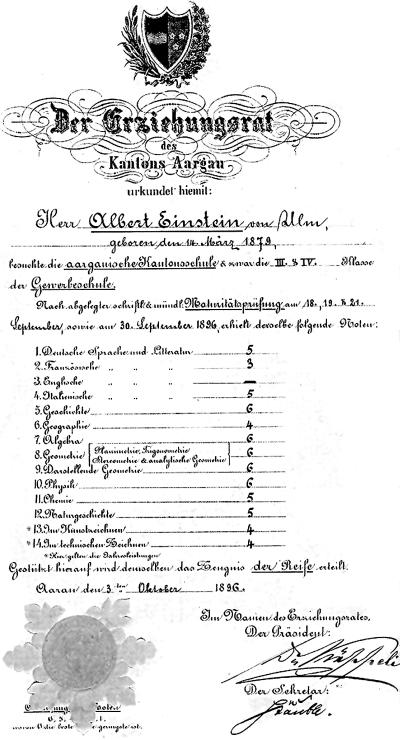 Der Erziehungsrat
des
Kantons Aargau
urkundet hiemit:
Herr Albert Einstein von Ulm,
geboren den 14. März 1879,
besuchte die aargauische Kantonsschule & zwar die III. & IV. Klasse
der Gewerbeschule.
Nach abgelegter schriftl. & mündl. Maturitätsprüfung am 18., 19. & 21.
September, sowie am 30. September 1896, erhielt derselbe folgende Noten:
1. Deutsche Sprache und Litteratur 5
2. Französische „ „ „ 3
3. Englische „ „ „ —
4. Italienische „ „ „ 5
5. Geschichte 6
6. Geographie 4
7. Algebra 6
8. Geometrie (Planimetrie, Trigonometrie Stereometrie & analytische Geometrie) 6
9. Darstellende Geometrie 6
10. Physik 6
11. Chemie 5
12. Naturgeschichte 5
*13. Im Kunstzeichnen 4
*14. Im technischen Zeichnen 4
*Hier gelten die Jahresleistungen
Gestützt hierauf wird demselben das Zeugnis der Reife erteilt.
Aarau den 3ten Oktober 1896.
Im Namen des Erziehungsrates,
Der Präsident:
Der Sekretär:
wovon 6 die beste geringste ist.